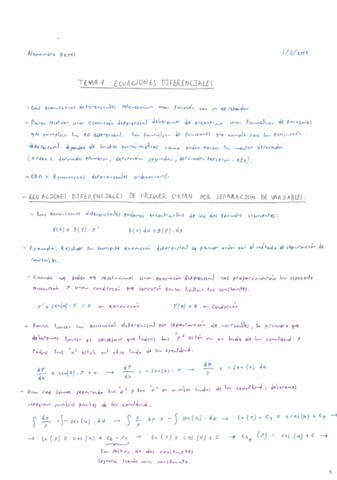 Alexandra Reyes
TEMA 7: ECUACIONES DIFERENCIALES
- Las ecuaciones diferenciales relacionan una función con su derivada
- Para resolver una ecuación diferencial debemos de encontrar una familia de funciones
que cumplan la ec diferencial. La familia de funciones que cumple con la ecuación
diferencial depende de tantos parámetros como orden tenga la mayor derivada
(orden = derivada primera, derivada segunda, derivada tercera, etc).
- EDO = Ecuaciones diferenciales ordinarias.
- ECUACIONES DIFERENCIALES DE PRIMER ORDEN POR SEPARACIÓN DE VARIABLES:
- Las ecuaciones diferenciales podemos encontrarlas de las dos formas siguientes:
f(x) = g(y) · y'    f(x) dx = g(y) · dy
- Ejemplo: Resolver la siguiente ecuación diferencial de primer orden por el método de separación de
variables.
- Cuando nos piden que resolvamos una ecuación diferencial nos proporcionarán la siguiente
ecuación y una condición que servirá para hallar las constantes.
y' + sen(x) · y = 0 → ecuación    y(0) = → Condición
- Para hacer la ecuación diferencial por separación de variables, lo primero que
debemos hacer es conseguir que todas las "y" estén en un lado de la igualdad y
todas las "x" estén al otro lado de la igualdad.
dy/dx + sen(x) · y = 0 → dy/dx = - sen(x) · y → dy/y = - sen(x) · dx
- Una vez hemos separado las "x" y las "y" en ambos lados de la igualdad, debemos
integrar ambas partes de la igualdad.
∫ dy/y = - ∫ sen(x) · dx → ∫ 1/y dy = - ∫ sen(x) · dx → Ln(y) + C₁ = + cos(x) + C₂ →
→ Ln(y) = cos(x) + C₂ - C₁ → Ln(y) = cos(x) + C →
La resta de dos constantes
seguirá siendo una constante.